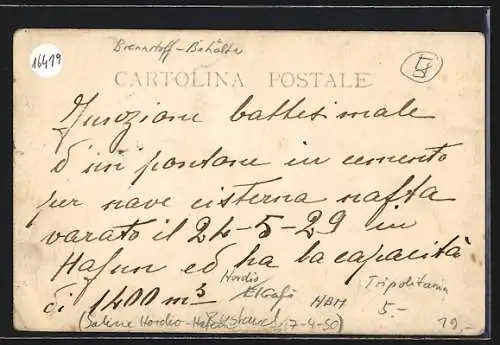 16419
Brennstoff-Behälter
CARTOLINA POSTALE
Funzione battesimale
d'un pontone in cemento
per nave cisterna nafta
varato il 24-5-29 in
Hafun ed ha la capacità
di 1400 m³
Nordio
HBM
Tripolitania
5.-
19,-
(Saline Nordio-Hafun 7-4-30)